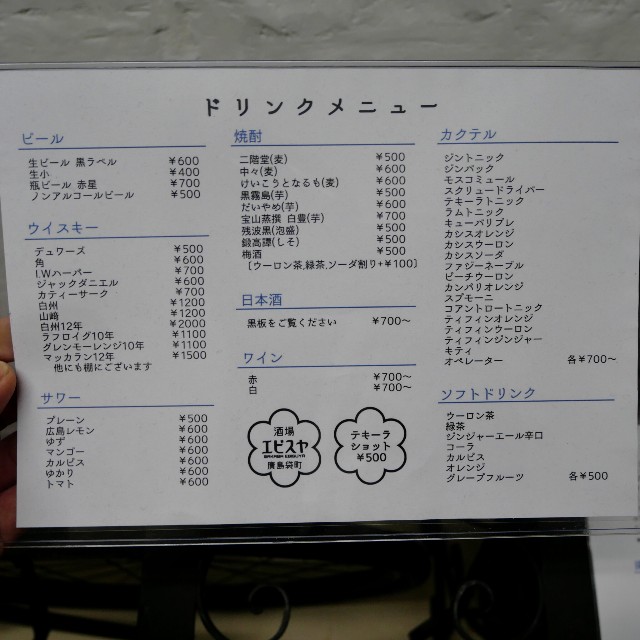 ドリンクメニュー
ビール
生ビール 黒ラベル ¥600
生小 ¥400
瓶ビール 赤星 ¥700
ノンアルコールビール ¥500
ウイスキー
デュワーズ ¥500
角 ¥600
I.Wハーパー ¥700
ジャックダニエル ¥600
カティーサーク ¥700
白州 ¥1200
山﨑 ¥1200
白州12年 ¥2000
ラフロイグ10年 ¥1100
グレンモーレンジ10年 ¥1100
マッカラン12年 ¥1500
他にも棚にございます
サワー
プレーン ¥500
広島レモン ¥600
ゆず ¥600
マンゴー ¥600
カルピス ¥600
ゆかり ¥600
トマト ¥600
焼酎
二階堂(麦) ¥500
中々(麦) ¥600
けいこうとなるも(麦) ¥600
黒霧島(芋) ¥500
だいやめ(芋) ¥600
宝山蒸撰 白豊(芋) ¥700
残波黒(泡盛) ¥500
鍛高譚(しそ) ¥500
梅酒 ¥500
〔ウーロン茶,緑茶,ソーダ割り+¥100〕
日本酒
黒板をご覧ください ¥700〜
ワイン
赤 ¥700〜
白 ¥700〜
酒場
エビスヤ
SAKABA EBISUYA
廣島袋町
テキーラ
ショット
¥500
カクテル
ジントニック
ジンバック
モスコミュール
スクリュードライバー
テキーラトニック
ラムトニック
キューバリブレ
カシスオレンジ
カシスウーロン
カシスソーダ
ファジーネーブル
ピーチウーロン
カンパリオレンジ
スプモーニ
コアントロートニック
ティフィンオレンジ
ティフィンウーロン
ティフィンジンジャー
キティ
オペレーター 各¥700〜
ソフトドリンク
ウーロン茶
緑茶
ジンジャーエール辛口
コーラ
カルピス
オレンジ
グレープフルーツ 各¥500